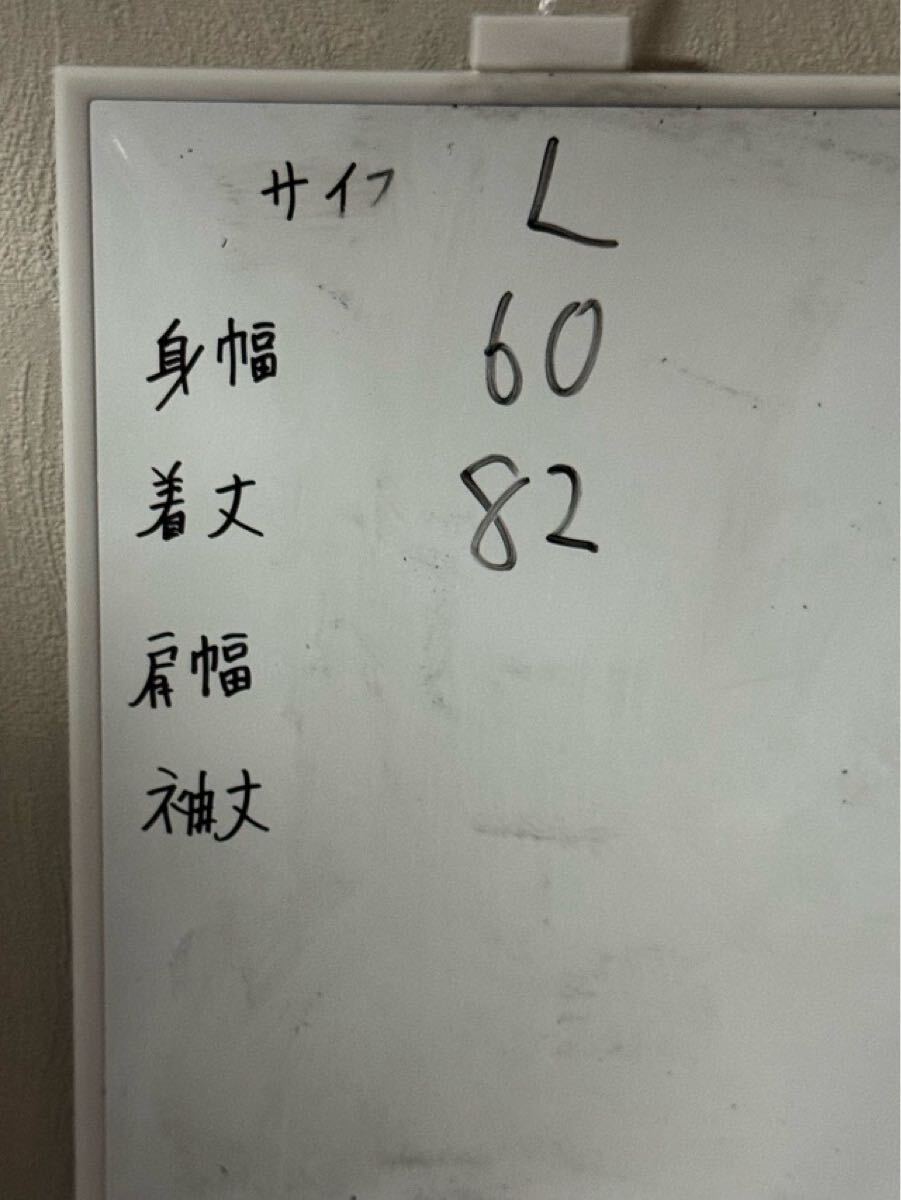 サイフ L
身幅 60
着丈 82
肩幅
袖丈